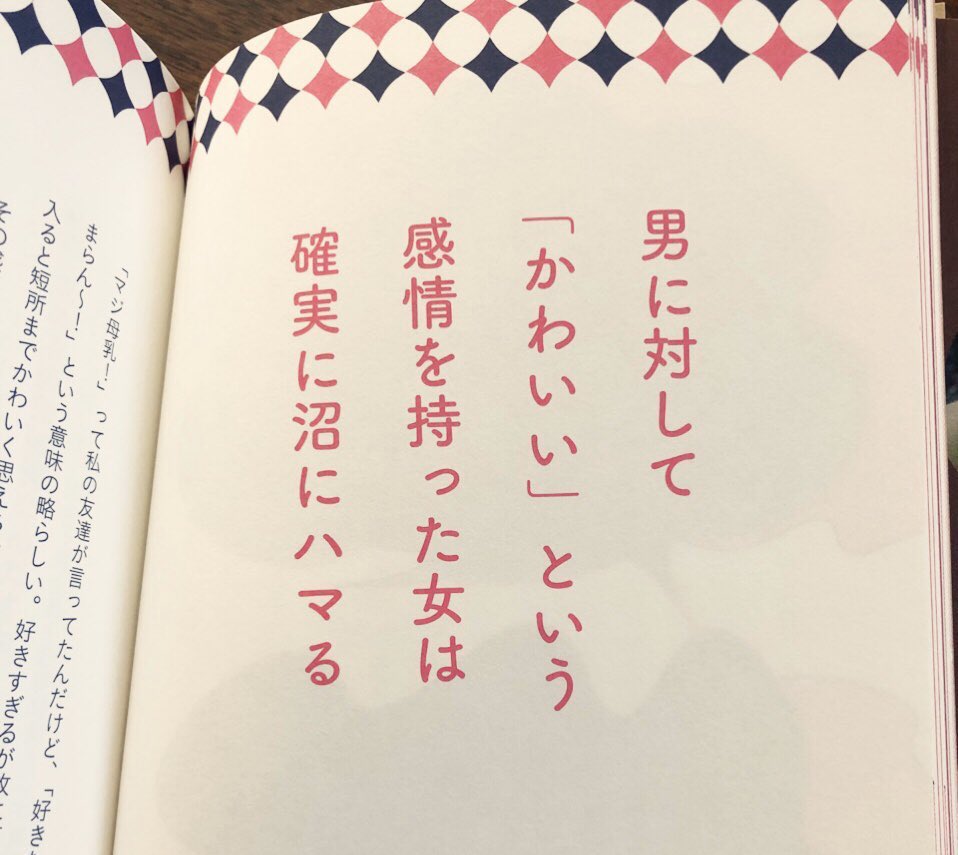 男に対して
「かわいい」という
感情を持った女は
確実に沼にハマる
「マジ母乳!」って私の友達が言ってたんだけど、「好き
まらん〜!」という意味の略らしい。好きすぎるが故に
入ると短所までかわいく思える
その